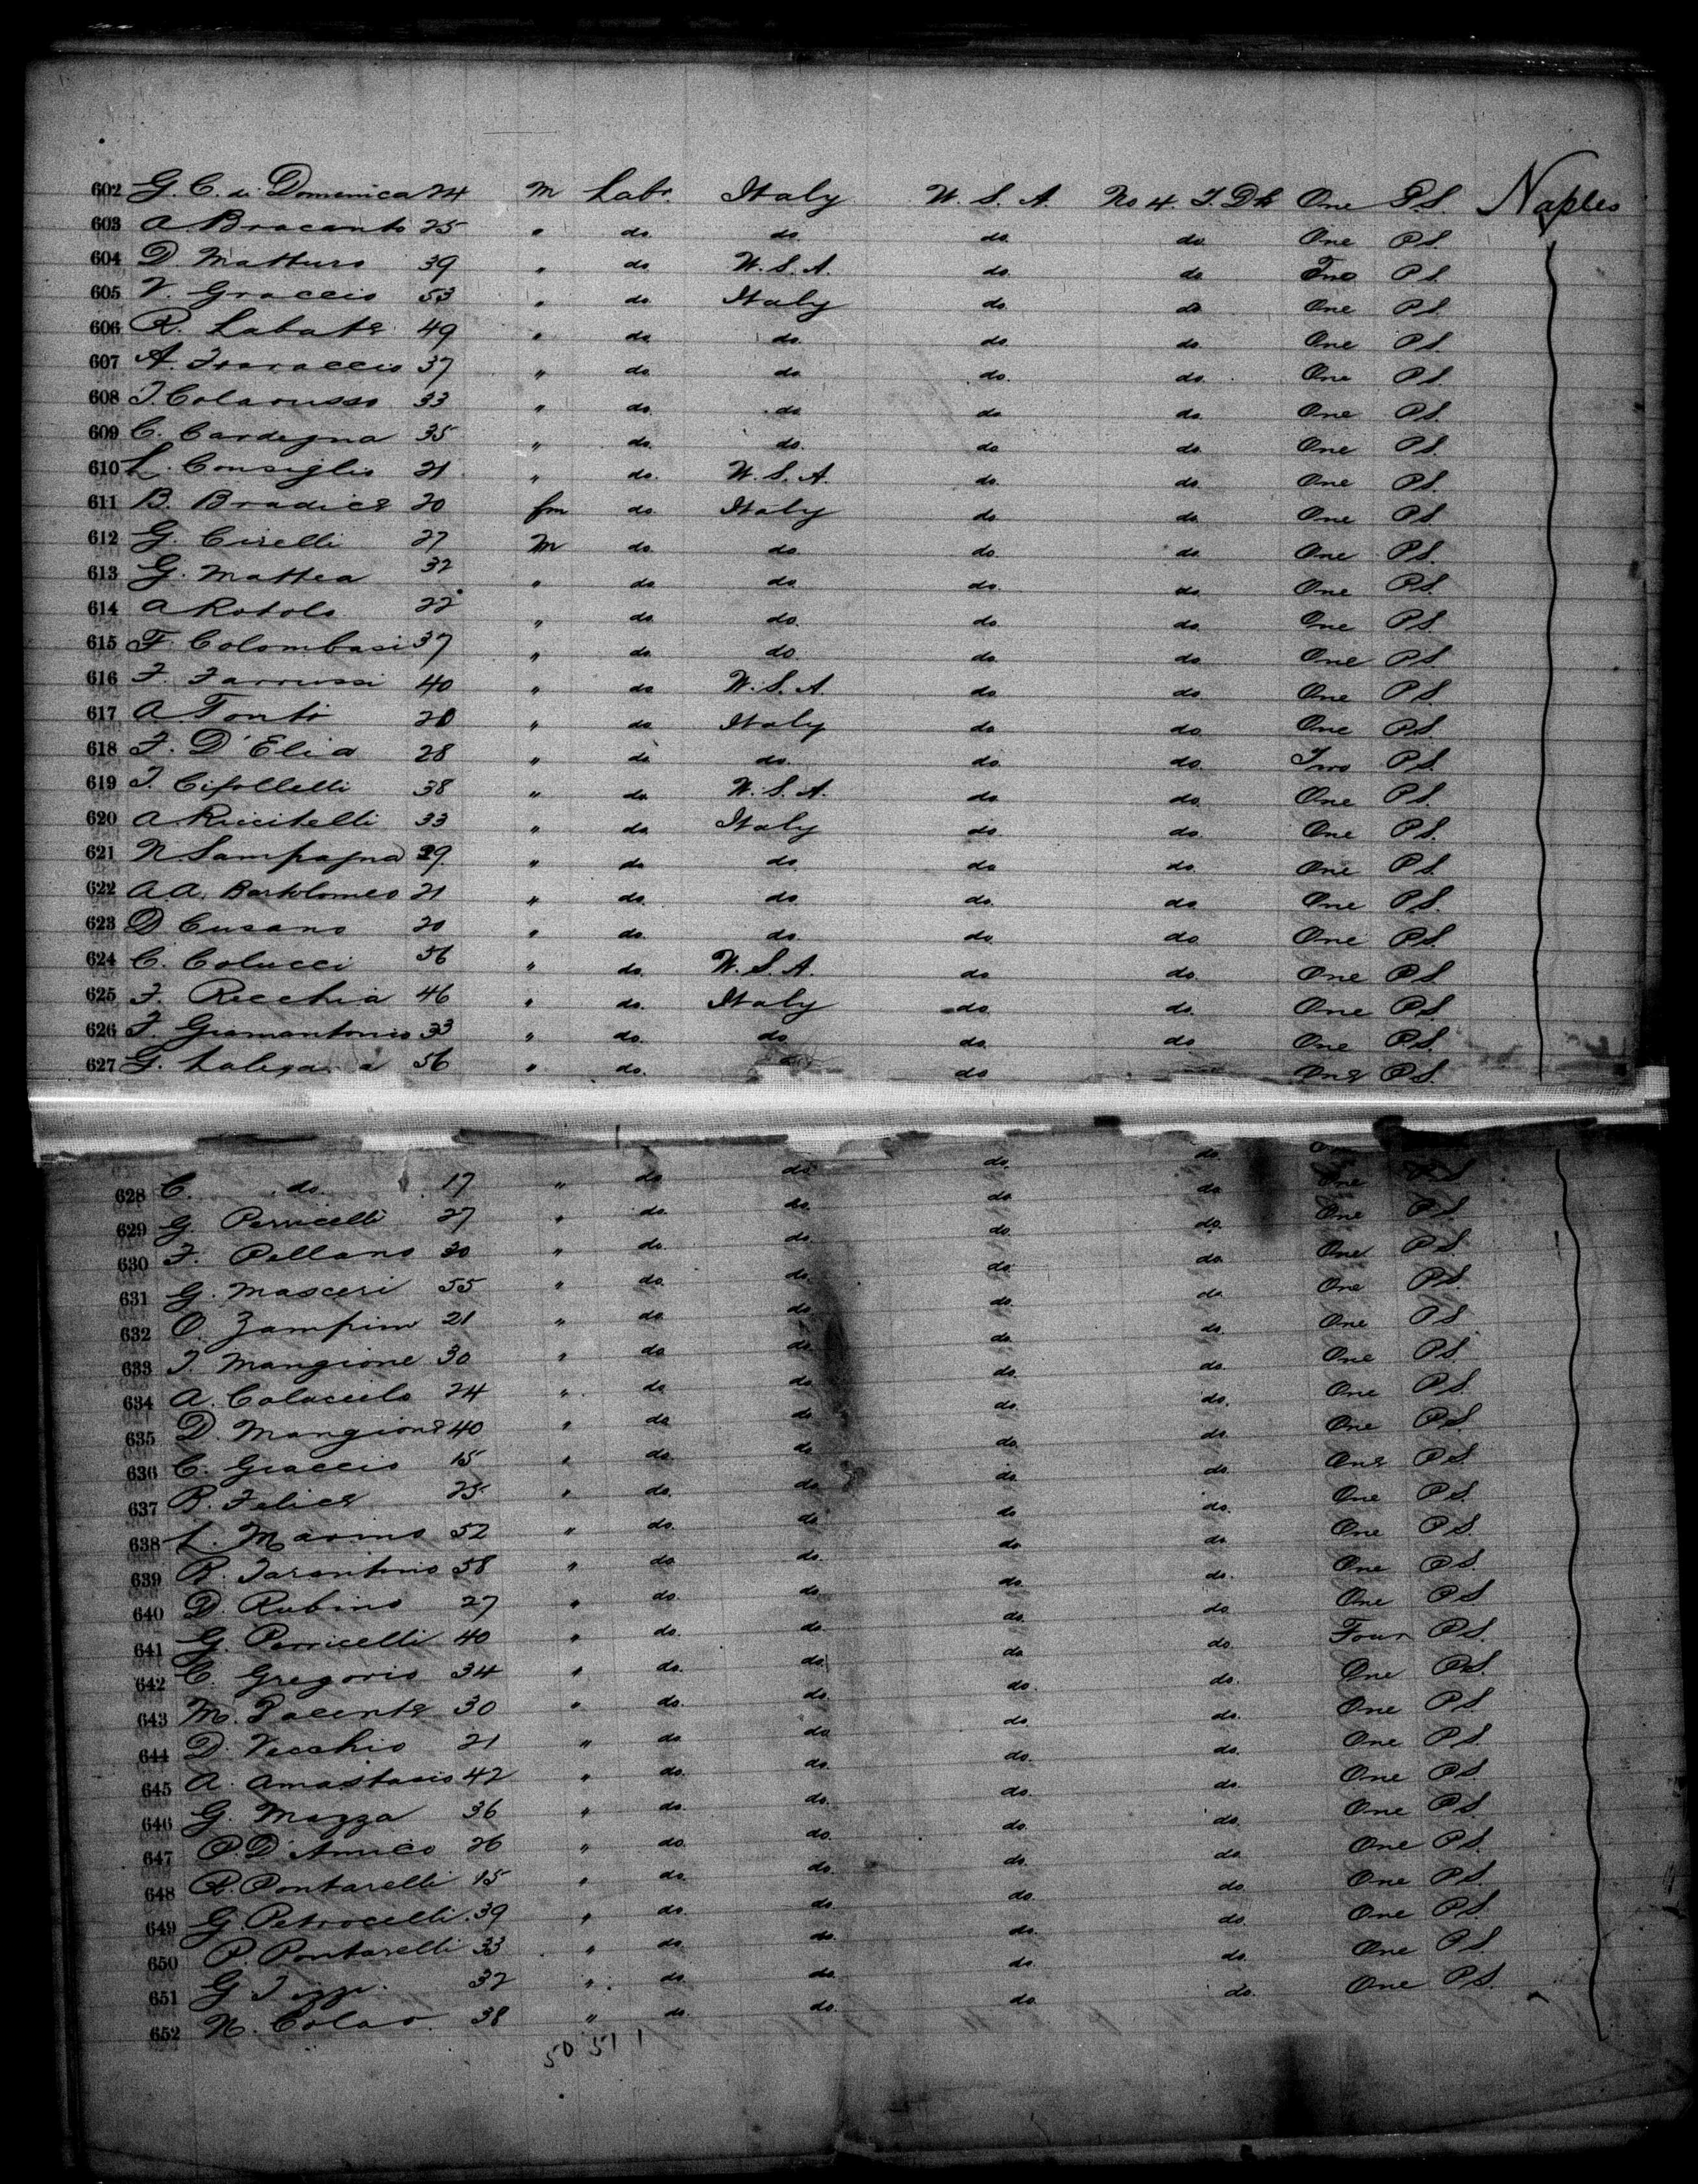 602 G. C. di Domenica 24 M Labr. Italy U. S. A. No 4. T. Dk One P.S. Naples
603 A Bracanto 25 " do. do. do. do. One P.S.
604 D. Matturo 39 " do U.S.A. do. do Two P.S.
605 V. Graccio 53 " do. Italy do. do One P.S.
606 R. Labate 49 " do do. do. do. One P.S.
607 A. 37 " do. do do. do. One P.S.
608 T. Colarusso 33 " do. do do do. One P.S.
609 C. Cardegna 35 " do. do. do do. One P.S.
610 L. Consiglio 21 " do. U.S.A. do. do. One P.S.
611 B. Bradice 20 fm do Italy do do. One P.S.
612 G. Cirelli 27 M do. do. do. do One P.S.
613 G. Mattea 32 " do do do. do. One P.S.
614 A Rotolo 22 " do do. do do. One P.S.
615 F. Colombasi 37 " do do do. do. One P.S.
616 F. Farrussi 40 " do U.S.A. do do. One P.S.
617 A Tonti 20 " do Italy do do One P.S.
618 F. D'Elia 28 " do do. do. do. Two P.S.
619 T. Cifollelli 38 " do U.S.A. do do. One P.S.
620 A Riccitelli 33 " do Italy do do. One P.S.
621 N. Sampagna 29 " do do. do do. One P.S.
622 A.A. Bartolomeo 21 " do. do. do. do One P.S.
623 D Cusano 20 " do. do. do. do One P.S.
624 C. Colucci 56 " do. U.S.A. do do. One P.S.
625 F. Recchia 46 " do. Italy do. do. One P.S.
626 F. Giamantonio 33 " do. do do. do One P.S.
627 G. 56 " do. do One P.S.
628 C. do. 17 " do do do. do. One P.S.
629 G. Perricelli 27 " do. do. do. do One P.S.
630 F. Pallano 30 " do. do. do. do. One P.S.
631 G. Masceri 55 " do. do. do. do One P.S.
632 O. Zampino 21 " do. do do. do. One P.S.
633 T. Mangione 30 " do do. do. do. One P.S.
634 A. Colaccelo 24 " do do. do. do. One P.S.
635 D. Mangione 40 " do do do. do. One P.S.
636 C. Graccio 15 " do. do do. do. One P.S.
637 R. Felice 25 " do. do. do. do. One P.S.
638 L. Marino 52 " do. do do do. One P.S.
639 R. Tarantino 58 " do. do. do. do. One P.S.
640 D. Rubino 27 " do. do. do. do One P.S.
641 G. Perricelli 40 " do. do. do. do. Four P.S.
642 C. Gregorio 34 " do. do. do do. One P.S.
643 M. Pacente 30 " do. do. do. do. One P.S.
644 D. Vecchio 21 " do do do. do. One P.S.
645 A. Amastasio 42 " do. do. do. do. One P.S.
646 G. Mazza 36 " do. do. do. do. One P.S.
647 P. D'Amico 26 " do. do. do. do One P.S.
648 R. Pontarelli 15 " do. do. do. do. One P.S.
649 G. Petrocelli 39 " do. do. do. do. One P.S.
650 P. Pontarelli 33 " do. do. do. do. One P.S.
651 G. 32 " do. do. do. do. One P.S.
652 N. Colao 38 " do. do. do.
50 51 1